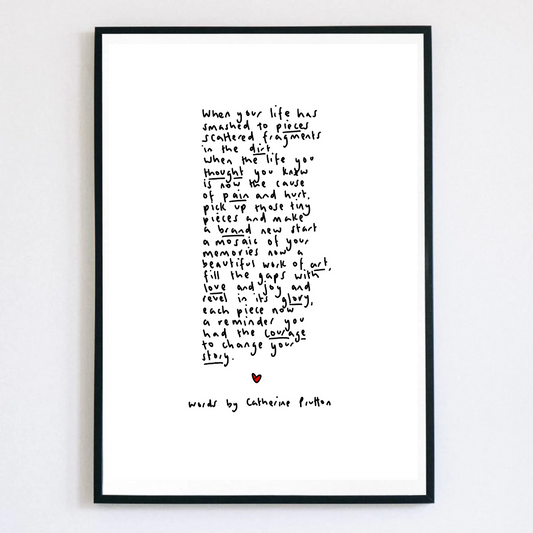 When your life has
smashed to pieces
scattered fragments
in the dirt.
When the life you
thought you knew
is now the cause
of pain and hurt.
pick up those tiny
pieces and make
a brand new start
a mosaic of your
memories now a
beautiful work of art,
fill the gaps with
love and joy and
revel in its glory,
each piece now
a reminder you
had the courage
to change your
story.
words by Catherine Prutton